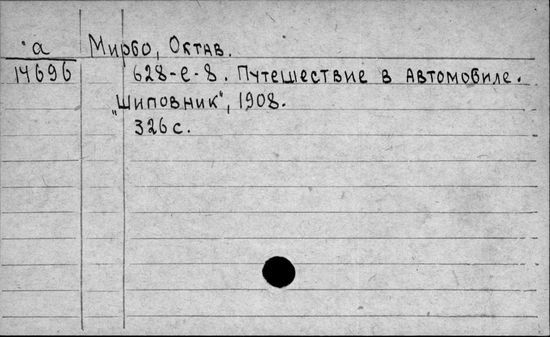 а Мирбо, Октав.
14696 628-е-8. Путешествие в автомобиле.
"Шиповник", 1908.
326 с.